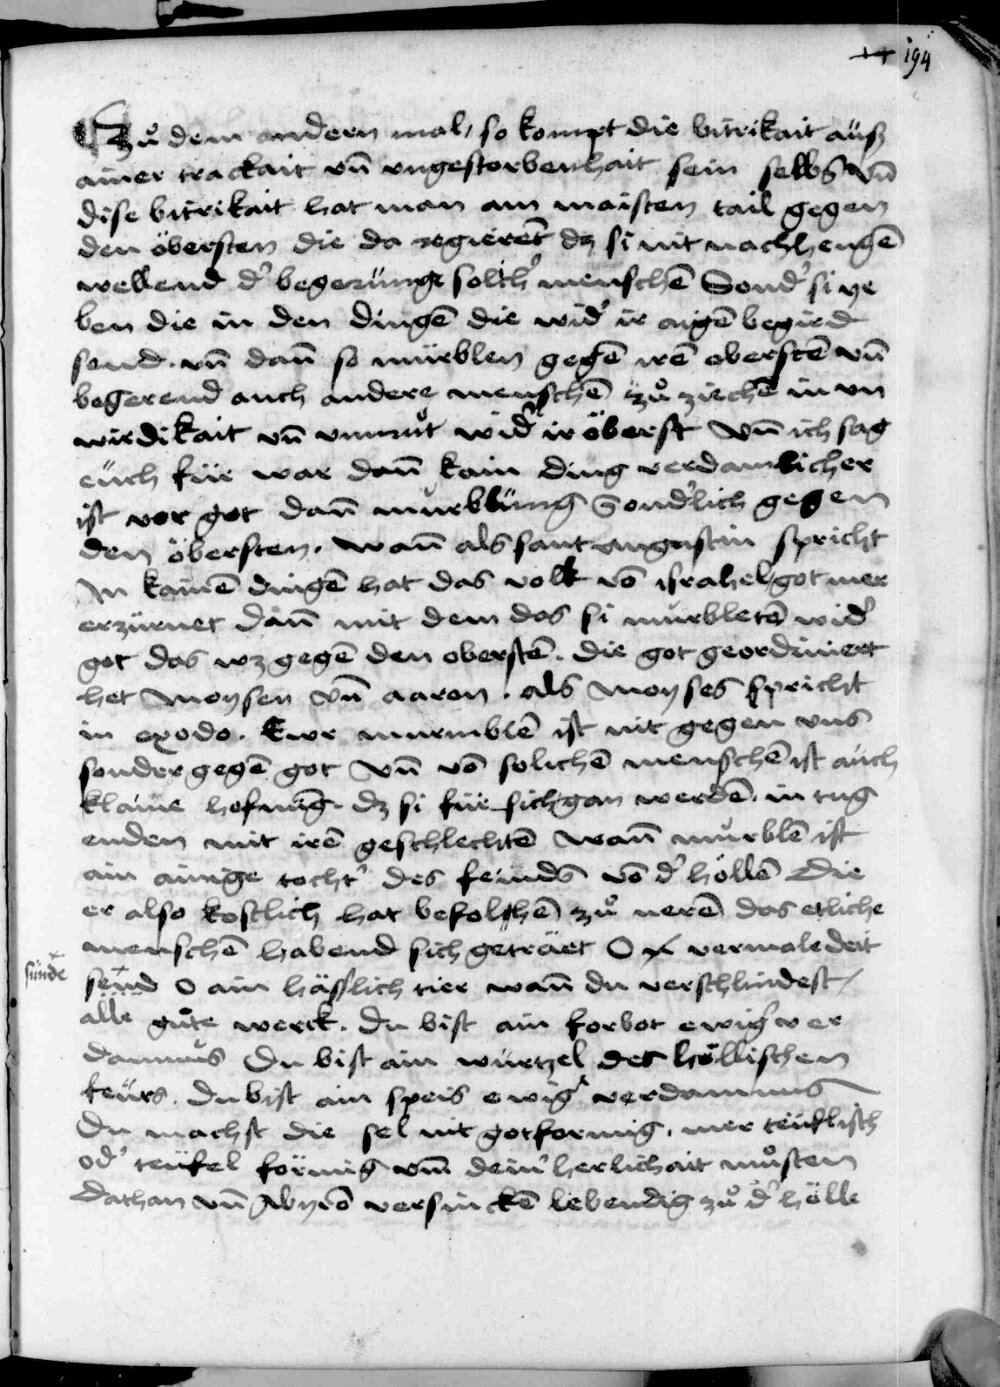 194
Zů dem andern mal, so kompt die bitrikait auß
ainer trackait vn̄ vngestorbenhait sein selbs vn̄
dise bitrikait hat man am maisten tail gegen
den öbersten die da regierēt dz si nit nachhengē
wellend d' begerünge solich' menschē Sond' si ye
ben die in den dingē die wid' ir aigē begird
send. vn̄ dan̄ so mürblen gegē irē oberstē vn̄
begerend auch andere menschē zů ziechē in vn
wirdikait vn̄ vnmůt wid' ir öberst Vn̄ ich sag
eüch für war dan̄ kain ding verdamlicher
ist vor got dan̄ murblüng Sond'lich gegen
den öbersten. Wan̄ als sant augustin spricht
In kainē dingē hat das volk vō israhel got mer
erzürnet dan̄ mit dem das si murbletē wid'
got das wz gegē den oberstē. die got geordiniert
het Moysen vn̄ aaron. als Moyses spricht
in exodo. Ewr murmblē ist nit gegen vns
sonder gegē got Vn̄ vō solichē menschē ist auch
klaine hofnūg. dz si für sich gan werdē. in tug
enden mit irē geschlechtē Wan̄ murblē ist
ain ainige tocht' des feinds vō d' höllē Die
er also kostlich hat befolchē zů nerē das etliche
menschē habend sich geträet O x vermaledeit
sünde
send O ain hässlich tier wan̄ du verschlindest
alle gůte werck. Du bist ain forbot ewig' ver
damnus Du bist ain wurtzel der höllischen
feürs. Du bist ain speis ewig' verdamnus
Du machst die sel nit gotformig. mer teüflisch
od' teüfel förmig vm̄ dein' herlichait můsten
Dathan vn̄ Abyrō versinckē lebendig zů d' hölle